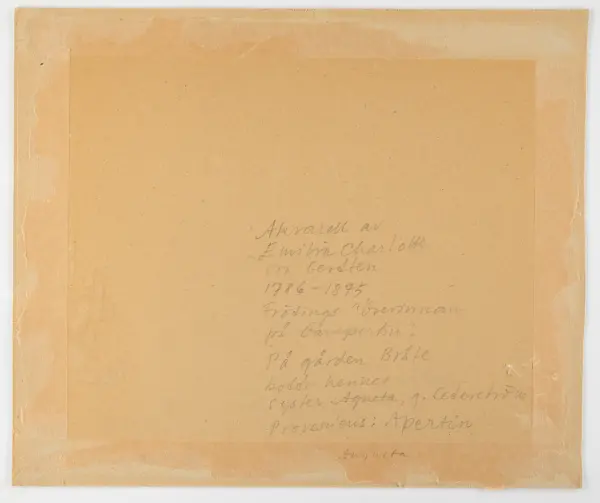 Akvarell av
Emilia Charlotte
von Gerdten
1786-1895
Frödings "Överstinnan
på
På gården Bråte
bodde hennes
syster Agneta, g. Cederström
Proveniens: Apertin
Augusta